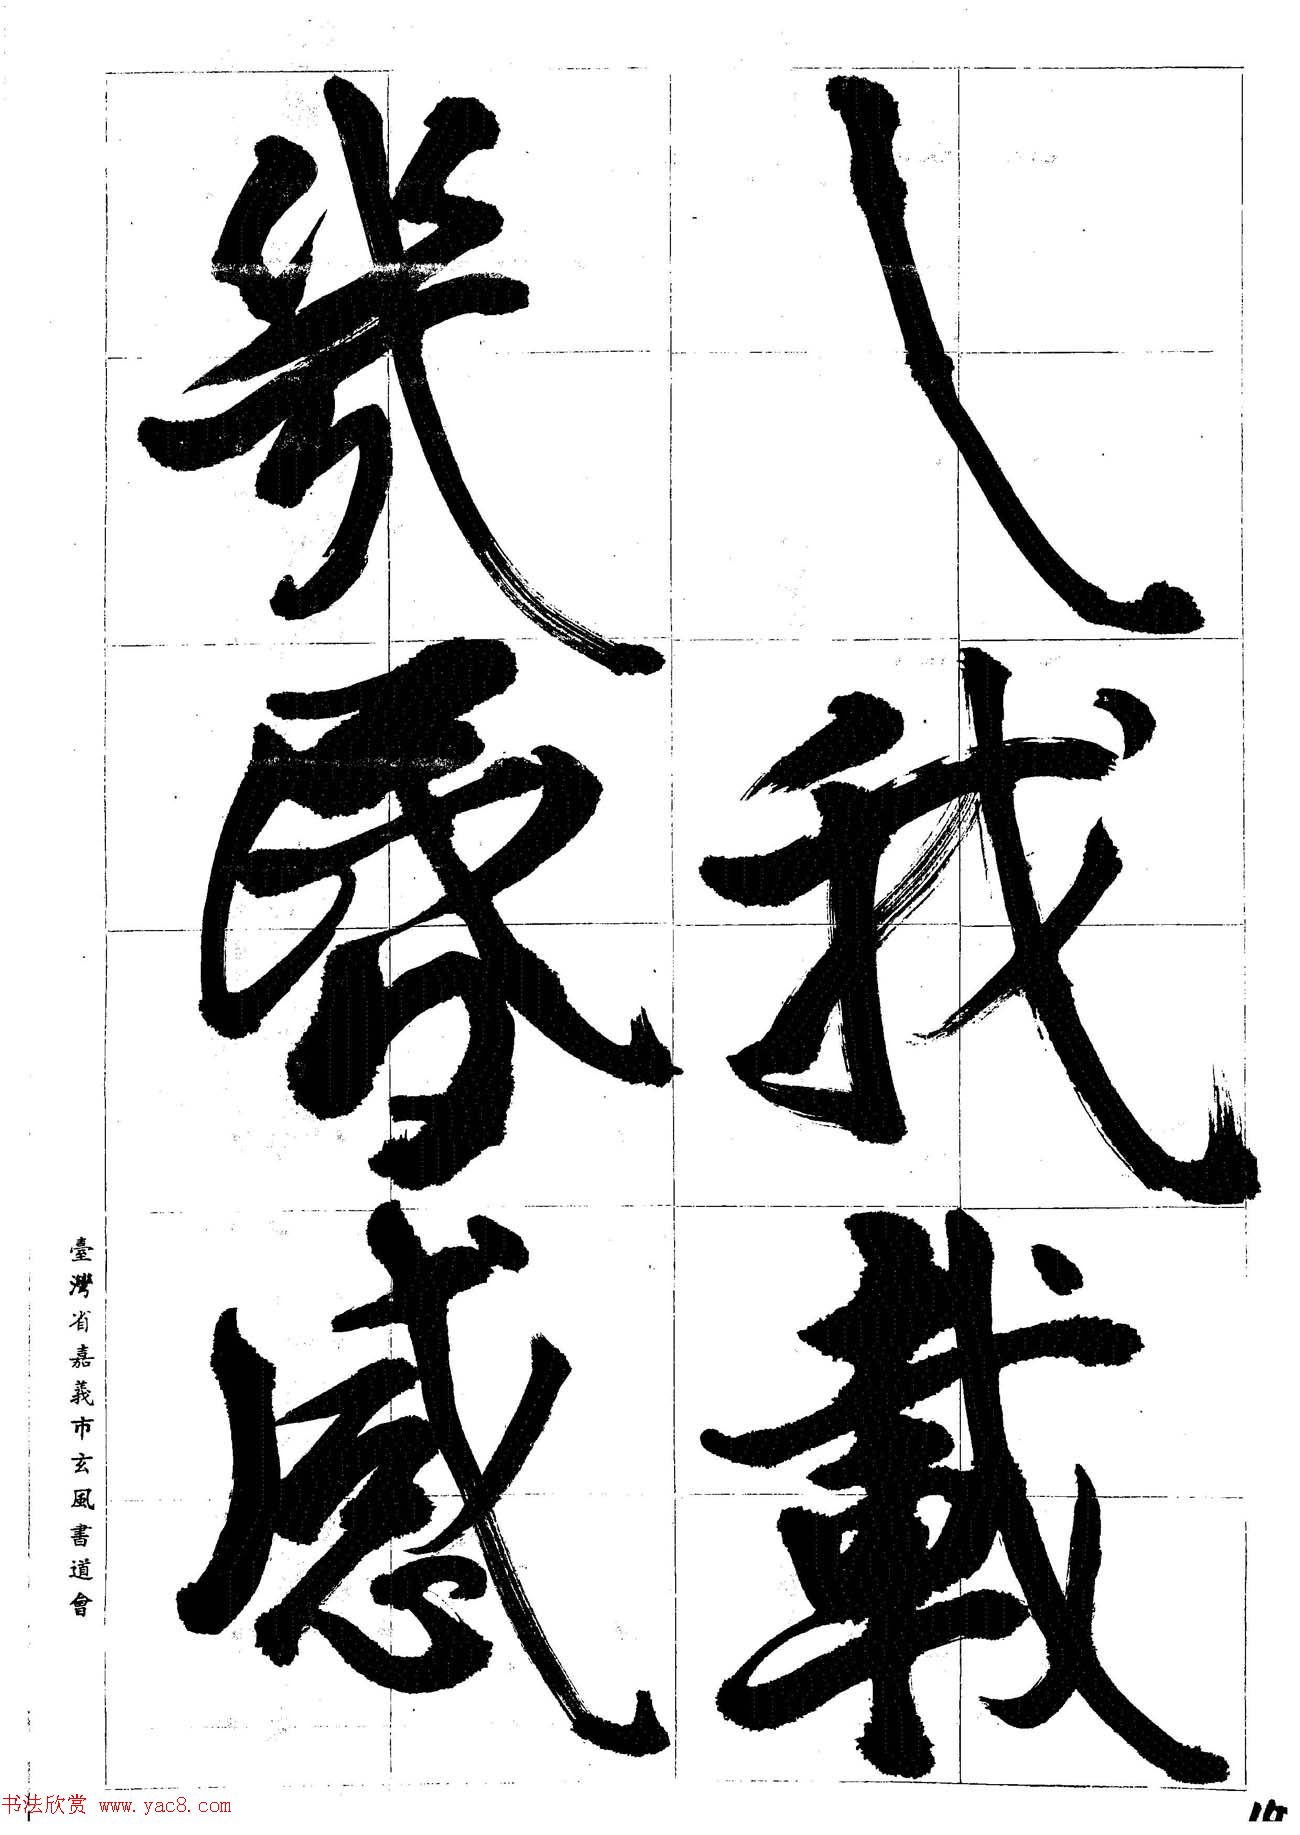 我載
幾昏感
臺灣省嘉義市玄風書道會
书法欣赏 www.yac8.com